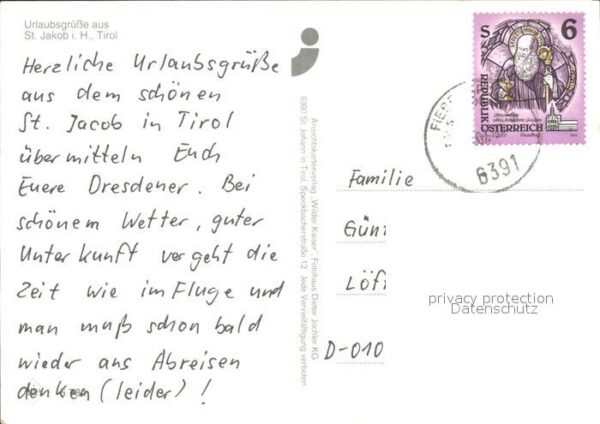 Urlaubsgrüße aus
St. Jakob i. H., Tirol
Herzliche Urlaubsgrüße
aus dem schönen
St. Jacob in Tirol
übermitteln Euch
Euere Dresdener. Bei
schönem Wetter, guter
Unterkunft vergeht die
Zeit wie im Fluge und
man muß schon bald
wieder ans Abreisen
denken (leider)!
Ansichtskartenverlag „Wilder Kaiser“, Fotohaus Dieter Jöchler KG
6380 St. Johann in Tirol, Speckbacherstraße 12. Jede Vervielfältigung verboten
S 6
REPUBLIK
ÖSTERREICH
6391
Familie
Günt
Löf
D-010
privacy protection
Datenschutz